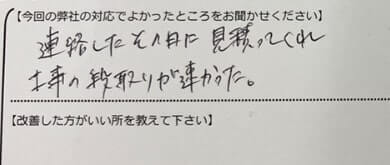 【今回の弊社の対応でよかったところをお聞かせください】
連絡したその日に見積ってくれ
工事の段取りが速かった。
【改善した方がいい所を教えて下さい】